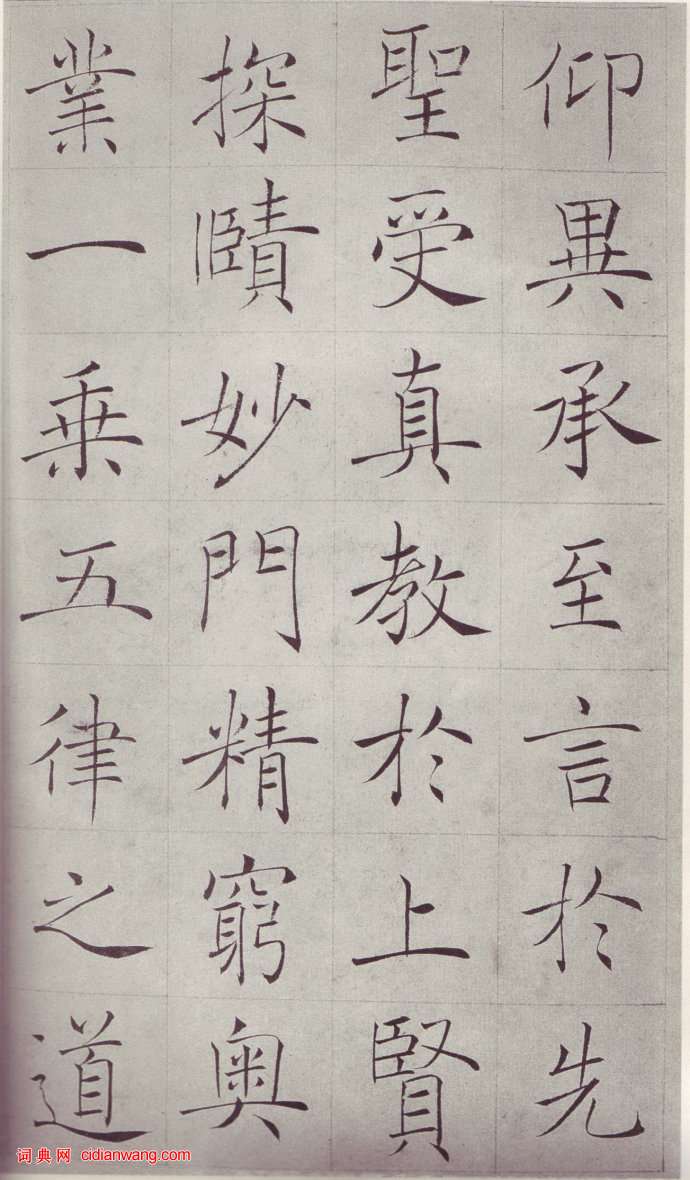 仰異承至言於先
聖受真教於上賢
探賾妙門精窮奧
業一乗五律之道
词典网 cidianwang.com